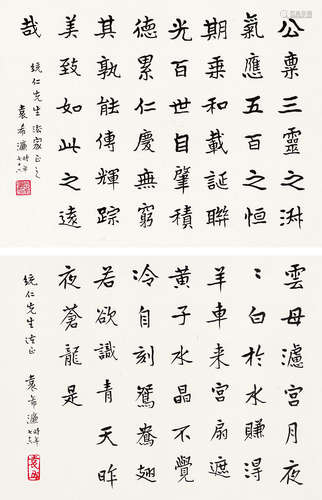 公稟三靈之淋
氣應五百之恒
期乘和載誕聯
光百世自肇積
德累仁慶無窮
其孰能傳輝踪
美致如此之遠
哉
統仁先生法家正之
袁希濂時年七十六
雲母濾宮月夜
〻白於水賺得
羊車來宮扇遮
黃子水晶不覺
冷自刻鴛鴦翅
若欲識青天昨
夜蒼龍是
統仁先生法正
袁希濂時年七十六